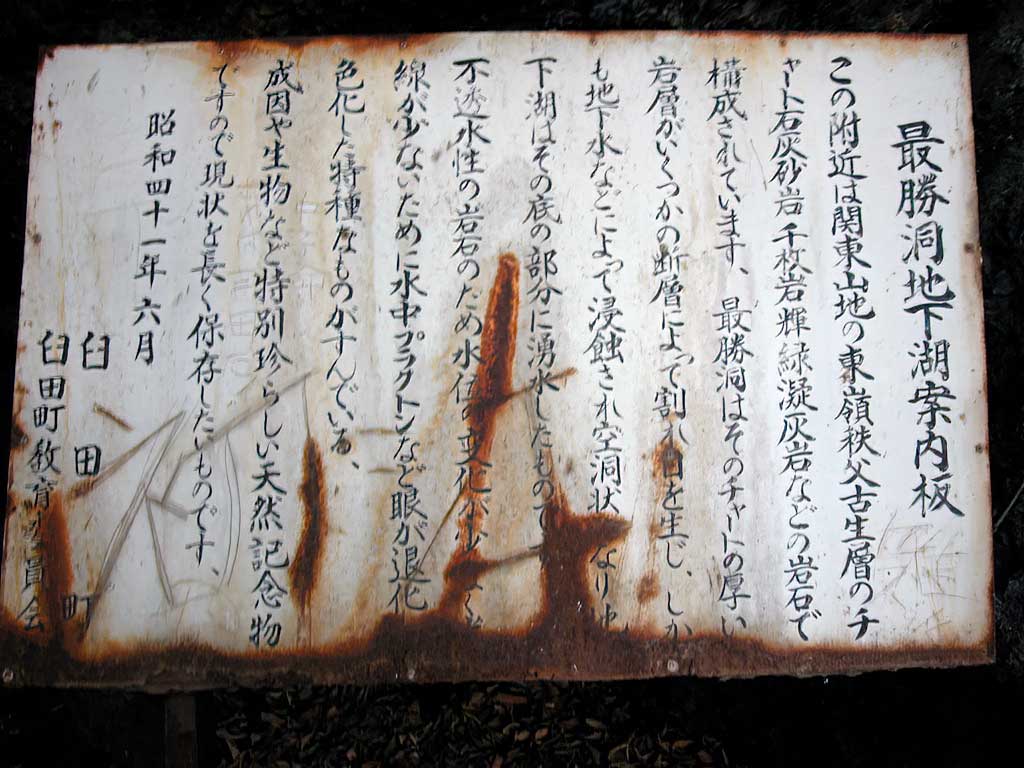 最勝洞地下湖案内板
この附近は関東山地の東嶺秩父古生層のチ
ャート石灰砂岩千枚岩輝緑凝灰岩などの岩石で
構成されています、最勝洞はそのチャートの厚い
岩層がいくつかの断層によって割れ目を生じ、しか
も地下水などによって浸蝕され空洞状 なり地
下湖はその底の部分に湧水したもので
不透水性の岩石のため水位の変化が少 く
線が少ないために水中プラクトンなど眼が退化
色化した特種なものがすんでいる、
成因や生物など特別珍らしい天然記念物
ですので現状を長く保存したいものです、
昭和四十一年六月
臼田町
臼田町教育委員会